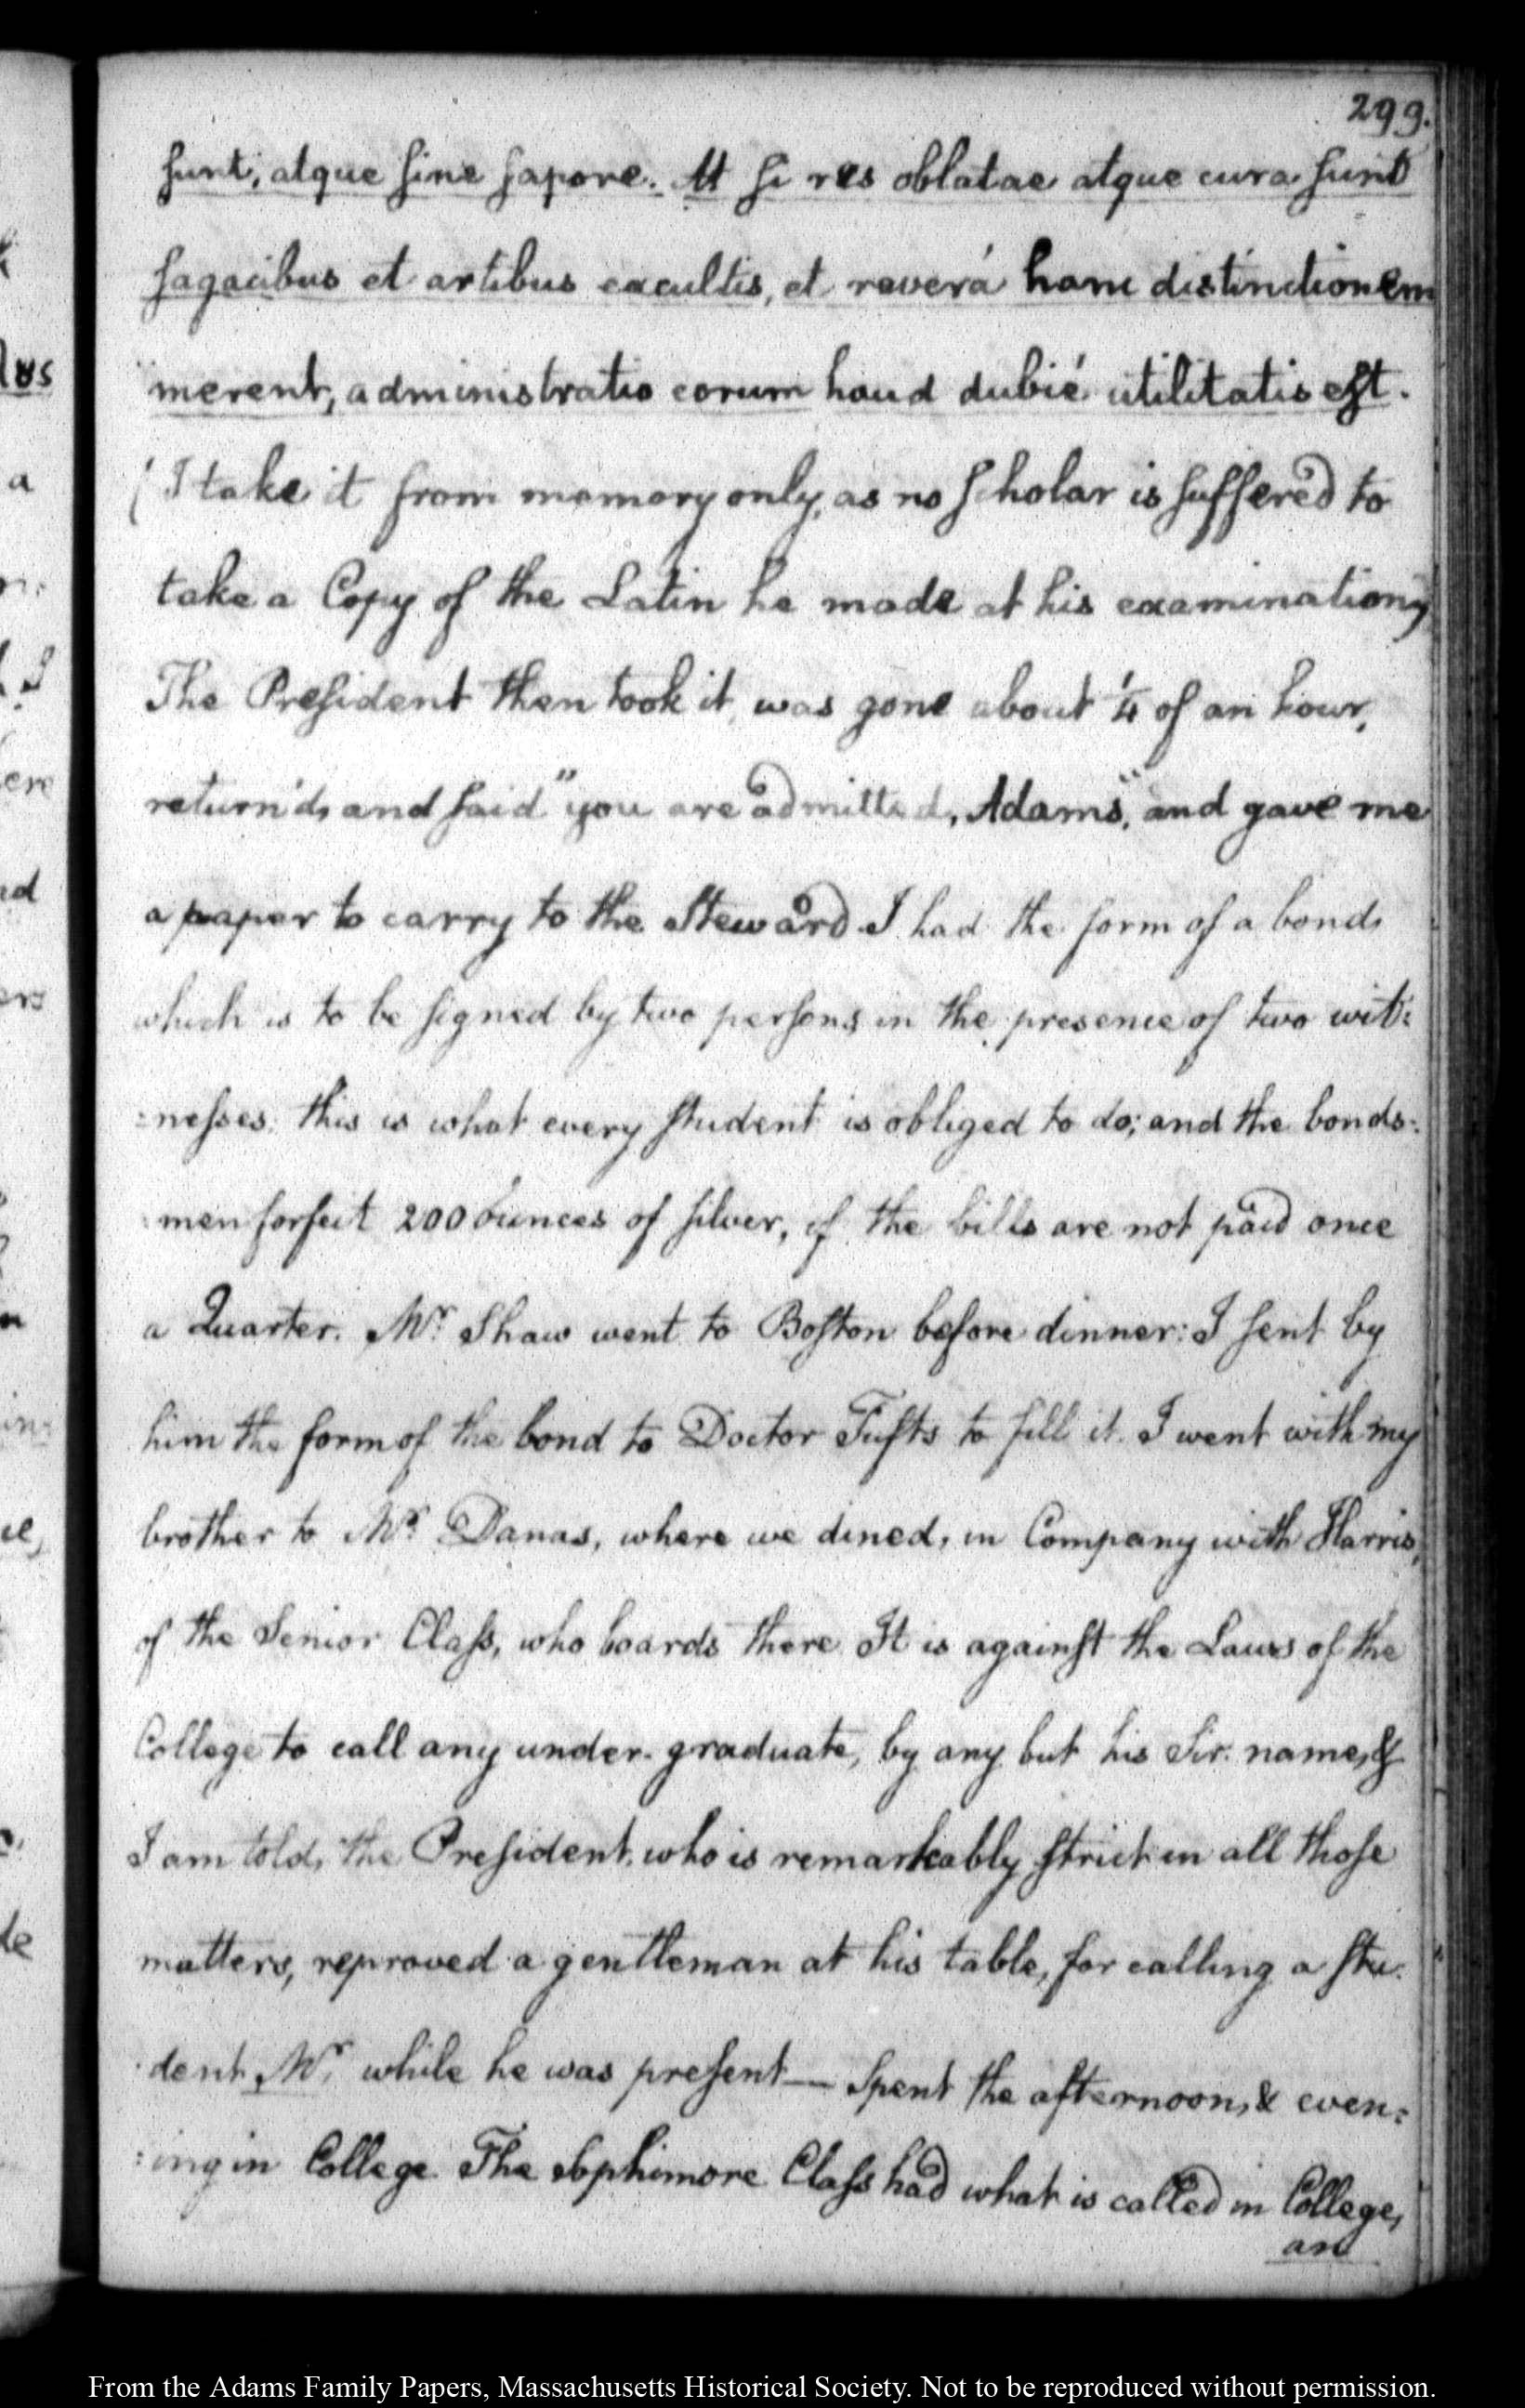 299.
sunt, atque sine sapore. At si res oblatae atque cura sunt
sagacibus et artibus excultis, et reverá hanc distinctionem
merent, administratio eorum haud dubié utilitatis est.
(I take it from memory only, as no scholar is suffered to
take a Copy of the Latin he made at his examination)
The President then took it, was gone about ¼ of an hour,
return'd, and said "you are admitted, Adams", and gave me
a paper to carry to the Steward. I had the form of a bond,
which is to be signed by two persons, in the presence of two wit:
:nesses: this is what every student is obliged to do; and the bonds:
:men forfeit 200 ounces of silver, if the bills are not paid once
a Quarter. Mr. Shaw went to Boston before dinner: I sent by
him the form of the bond to Doctor Tufts to fill it. I went with my
brother to Mr. Danas, where we dined, in Company with Harris,
of the Senior Class, who boards there. It is against the Laws of the
College to call any under-graduate, by any but his Sir-name, &
I am told, the President, who is remarkably strict in all those
matters, reproved a gentleman at his table, for calling a stu-
-dent Mr. while he was present— Spent the afternoon, & even:
:ing in College. The Sophimore Class had what is called in College,
an
From the Adams Family Papers, Massachusetts Historical Society. Not to be reproduced without permission.